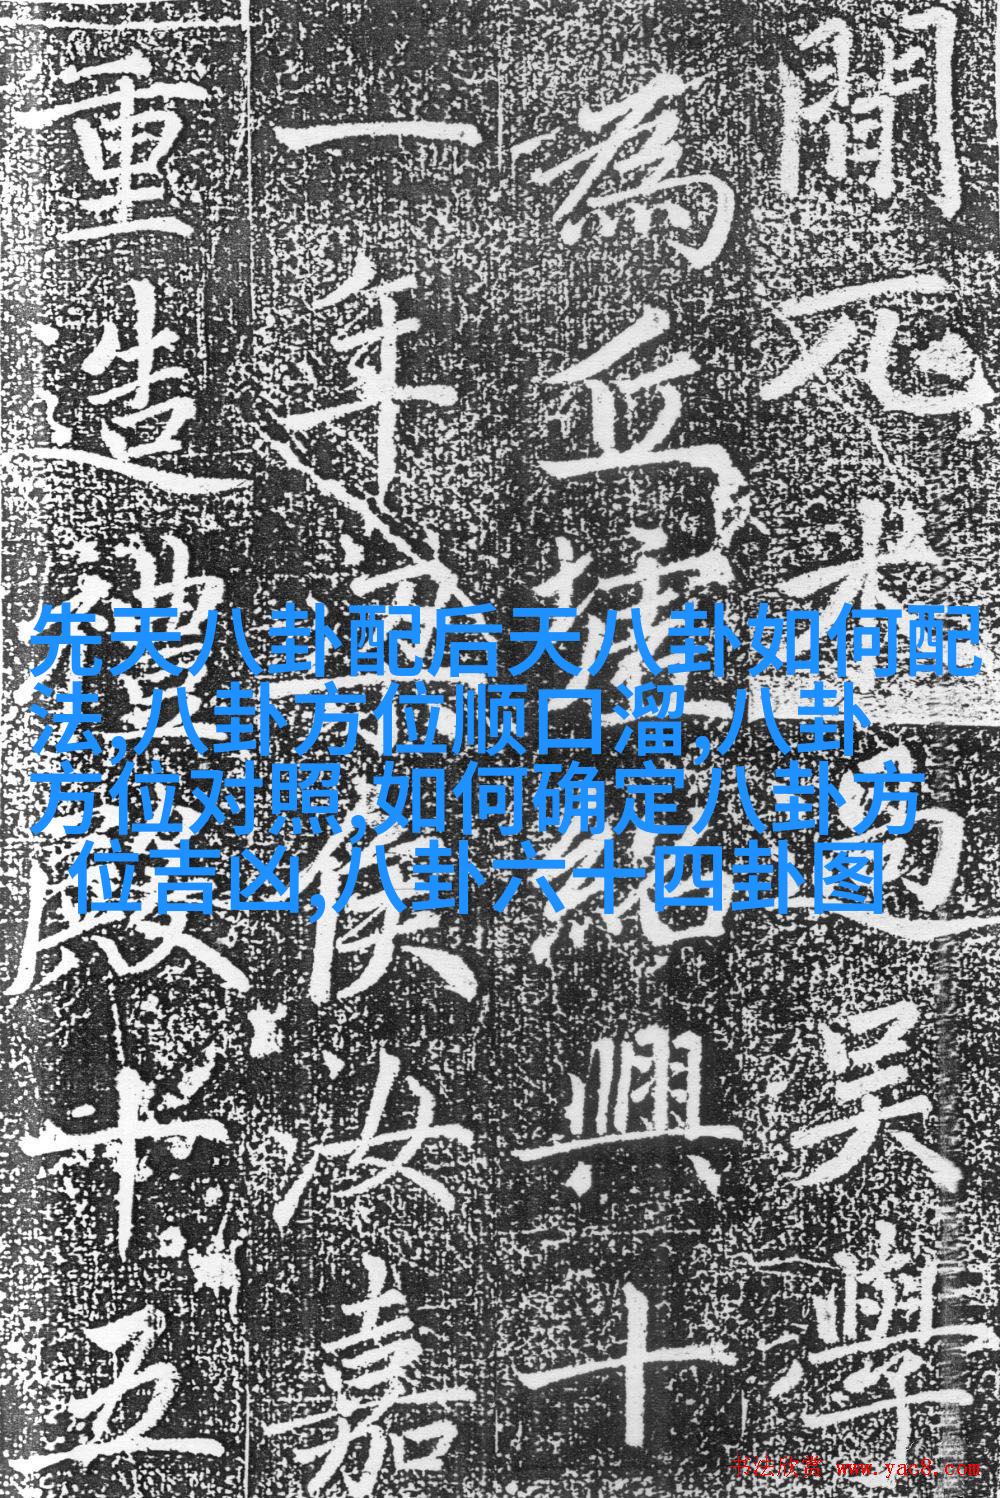 間元吳學
為丘墟紹興十
一年侯汝嘉
重造禮殿十五
先天八卦配后天八卦如何配
法,八卦方位顺口溜,八卦
方位对照,如何确定八卦方
位吉凶,八卦六十四卦图
书法欣赏 www.yac8.com